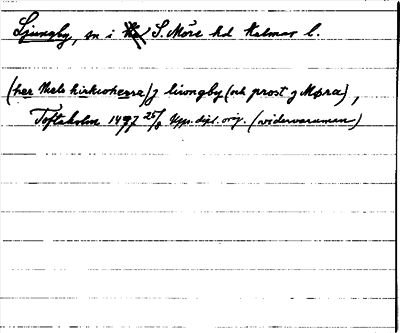 Ljungby, sn i S. Möre hd Kalmar l.
(her Niels kirkioherra) j liongby (och prost j Møra),
Toftaholm 1497 25/8 Upps. dipl. orig. (widervaruman)